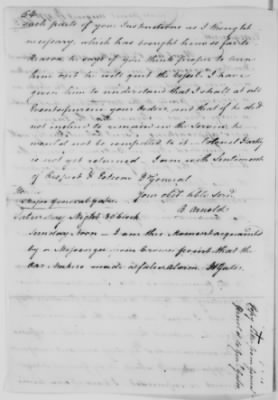 54
such parts of your Instructions as I thought
necessary, which has brought him so far to
Reason he says if you think proper to turn
him out he will quit the Vessel. I have
given him to understand that I shall at all
Events inforce your Orders, and that if he did
not incline to remain in the Service he
would not be compelled to it. Colonel
is not yet returned. I am with Sentiments
of Respect & Esteem Dr General
To Your obdt hble Servt
Major General Gates. B Arnold
Saturday Night 8 oClock
Sunday Noon - I am this Moment acquainted
by a Messenger from Crown point that the
made a false alarm H Gates.
Copy